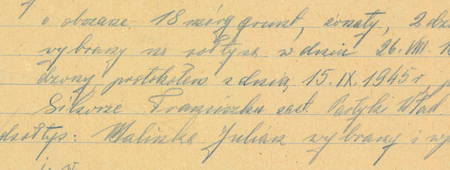 o obszarze 18 mórg gruntu, żonaty, 2 dz
wybrany na sołtysa w dniu 26.VIII.1
dzony protokołem z dnia 15.IX.1945 r
Sikorze Franciszku zast. Partyki Wład
dsołtys: Malinka Julian wybrany i